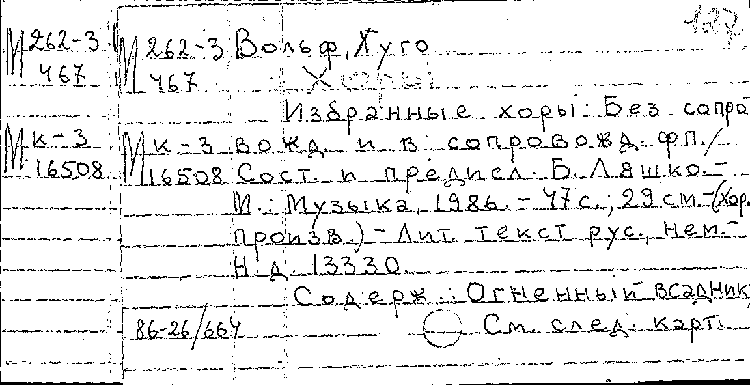 127
М 262-3 М 262-3 Вольф, Хуго
467 467 Хоры
Избранные хоры: Без сопро
М к-3 М к-3 вожд. и в сопровожд. фп./
16508 16508 Сост. и предисл. Б. Ляшко. –
М.: Музыка, 1986. – 47 с.; 29 см. – (Хор.
произв.) – Лит. текст рус., нем. –
Н д 13330
Содерж.: Огненный всадник;
86-26/664 См. след. карт.